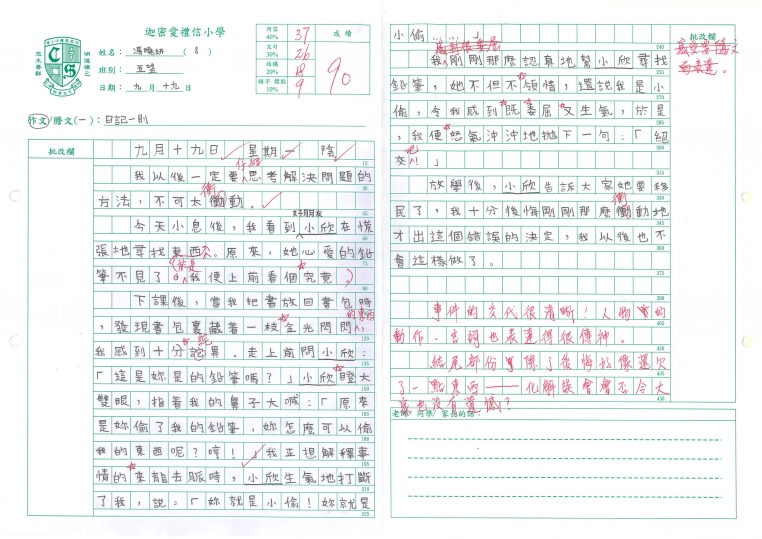 迦密愛禮信小學
姓名：馮曉妍 ( 8 )
班別：五望
日期：九月十九日
內容 40% 37
文句 30% 26
結構 20% 18
錯字 標點 10% 9
成績
90
作文/謄文(一)：日記一則
批改欄
九月十九日 星期一 陰
仔細
我以後一定要思考解決問題的
衝
方法，不可太衝動。
好朋友
今天小息後，我看到小欣在慌
張地尋找東西。原來，她心愛的鉛
於是
筆不見了，我便上前看個究竟。
下課後，當我把書放回書包時
的東西
，發現書包裏藏着一枝金光閃閃，
我感到十分詫異。走上前問小欣：
「這是妳是的鉛筆嗎？」小欣瞪大
雙眼，指着我的鼻子大喊：「原來
是妳偷了我的鉛筆，妳怎麼可以偷
我的東西呢？哼！」我正想解釋事
情的來龍去脈時，小欣生氣地打斷
了我，說：「妳就是小偷！妳就是
小偷……」
批改欄
我剛剛那麼認真地幫小欣尋找
鉛筆，她不但不領情，還說我是小
偷，令我感到既委屈又生氣，於是
，我便怒氣沖沖地拋下一句：「絕
吧
交！」
放學後，小欣告訴大家她要移
衝
民了，我十分後悔剛剛那麼衝動地
才出這個錯誤的決定，我以後也不
會這樣做了。
事件的交代很清晰！人物的
動作、言詞也表達得很傳神。
結尾部份除了後悔好像還欠
了一點東西——化解誤會會否令大
家也沒有遺憾？
老師/同學/家長的話：